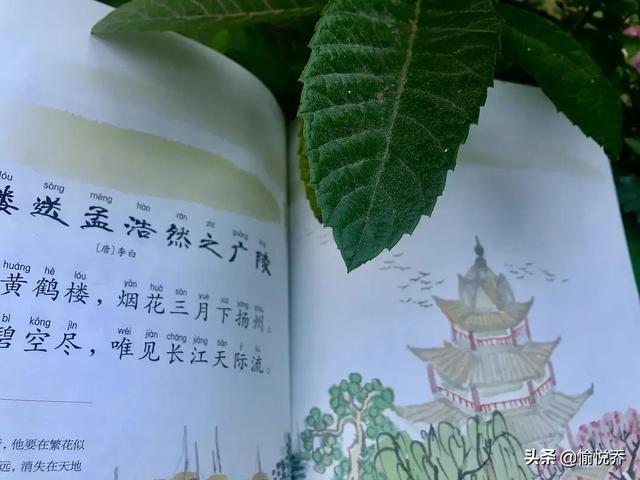 lóu sòng mèng hào rán zhī guǎng líng
楼送孟浩然之广陵
[唐]李白
huáng hè lóu yān huā sān yuè xià yáng zhōu
黄鹤楼，烟花三月下扬州。
bì kōng jìn wéi jiàn cháng jiāng tiān jì liú
碧空尽，唯见长江天际流。
，他要在繁花似
远，消失在天地
头条 @愉悦乔